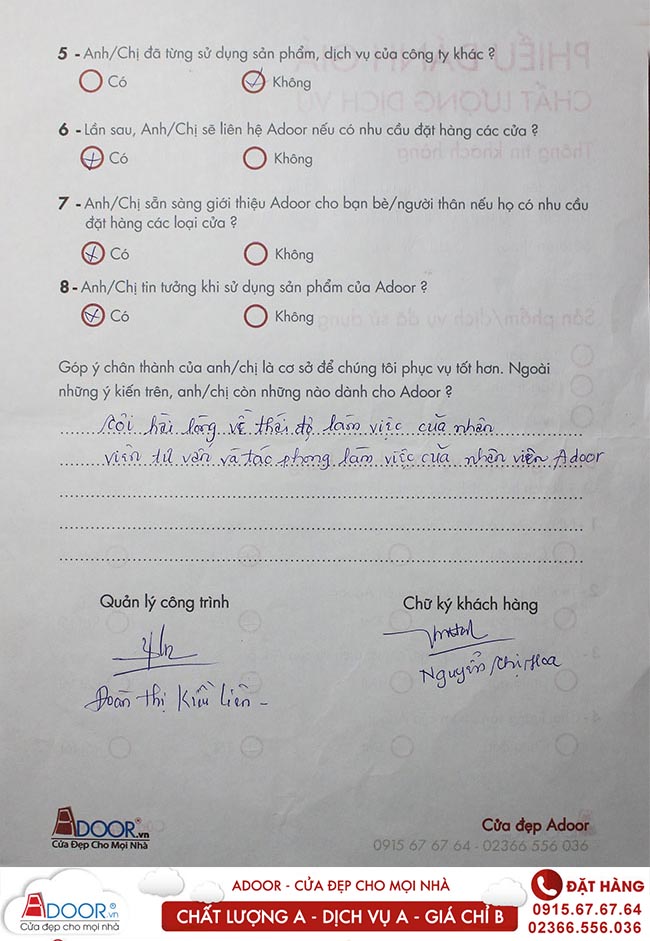 5 - Anh/Chị đã từng sử dụng sản phẩm, dịch vụ của công ty khác ?
Có Không
6 - Lần sau, Anh/Chị sẽ liên hệ Adoor nếu có nhu cầu đặt hàng các cửa ?
Có Không
7 - Anh/Chị sẵn sàng giới thiệu Adoor cho bạn bè/người thân nếu họ có nhu cầu
đặt hàng các loại cửa ?
Có Không
8 - Anh/Chị tin tưởng khi sử dụng sản phẩm của Adoor ?
Có Không
Góp ý chân thành của anh/chị là cơ sở để chúng tôi phục vụ tốt hơn. Ngoài
những ý kiến trên, anh/chị còn những nào dành cho Adoor ?
hài lòng về thái độ làm việc của nhân
viên tư vấn và tác phong làm việc của nhân viên Adoor
Quản lý công trình Chữ ký khách hàng
Đoàn Thị Kiều Liên Nguyễn Thị Hoa
ADOOR.vn
Cửa Đẹp Cho Mọi Nhà
Cửa đẹp Adoor
0915 67 67 64 - 02366 556 036
ADOOR.vn
Cửa đẹp cho mọi nhà
ADOOR - CỬA ĐẸP CHO MỌI NHÀ
CHẤT LƯỢNG A - DỊCH VỤ A - GIÁ CHỈ B
ĐẶT HÀNG
0915.67.67.64
02366.556.036